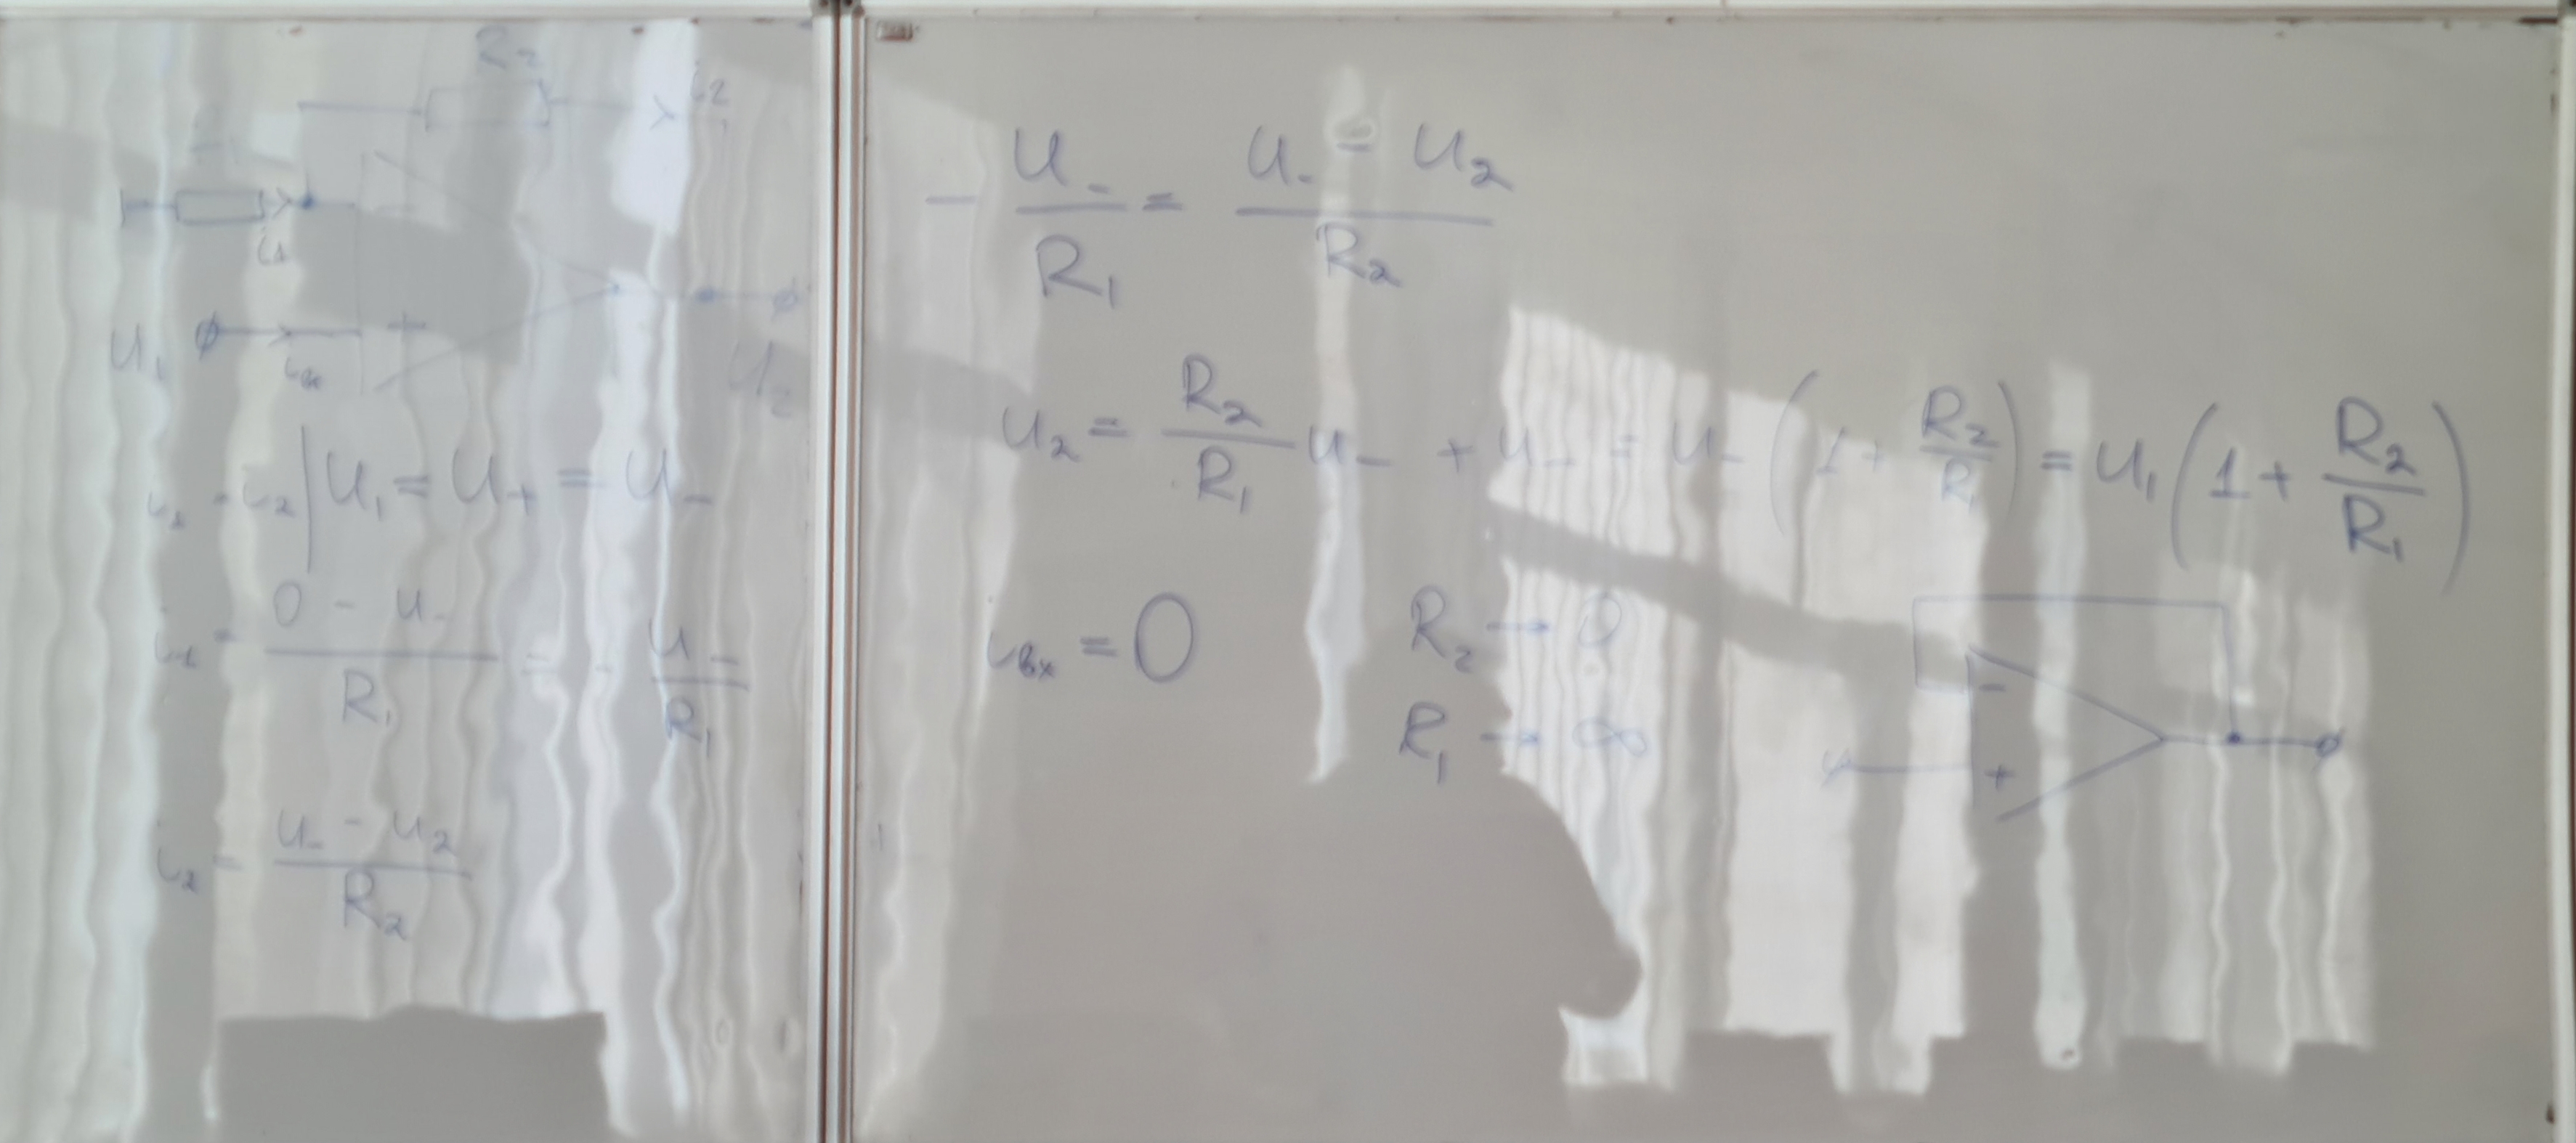 R₂
i₂
i₁
-
+
U₁
iвх
U₂
i₁ = i₂ | U₁ = U₊ = U₋
i₁ = (0 - U₋)/R₁ = - U₋/R₁
i₂ = (U₋ - U₂)/R₂
- U₋/R₁ = (U₋ - U₂)/R₂
U₂ = R₂/R₁ U₋ + U₋ = U₋ (1 + R₂/R₁) = U₁ (1 + R₂/R₁)
iвх = 0
R₂ → 0
R₁ → ∞
-
+